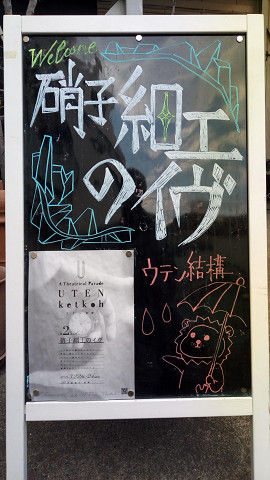 Welcome
硝子細工
のイヴ
ウテン結構
U
A Theatrical Parade
UTEN
ketkoh
2
硝子細工のイヴ